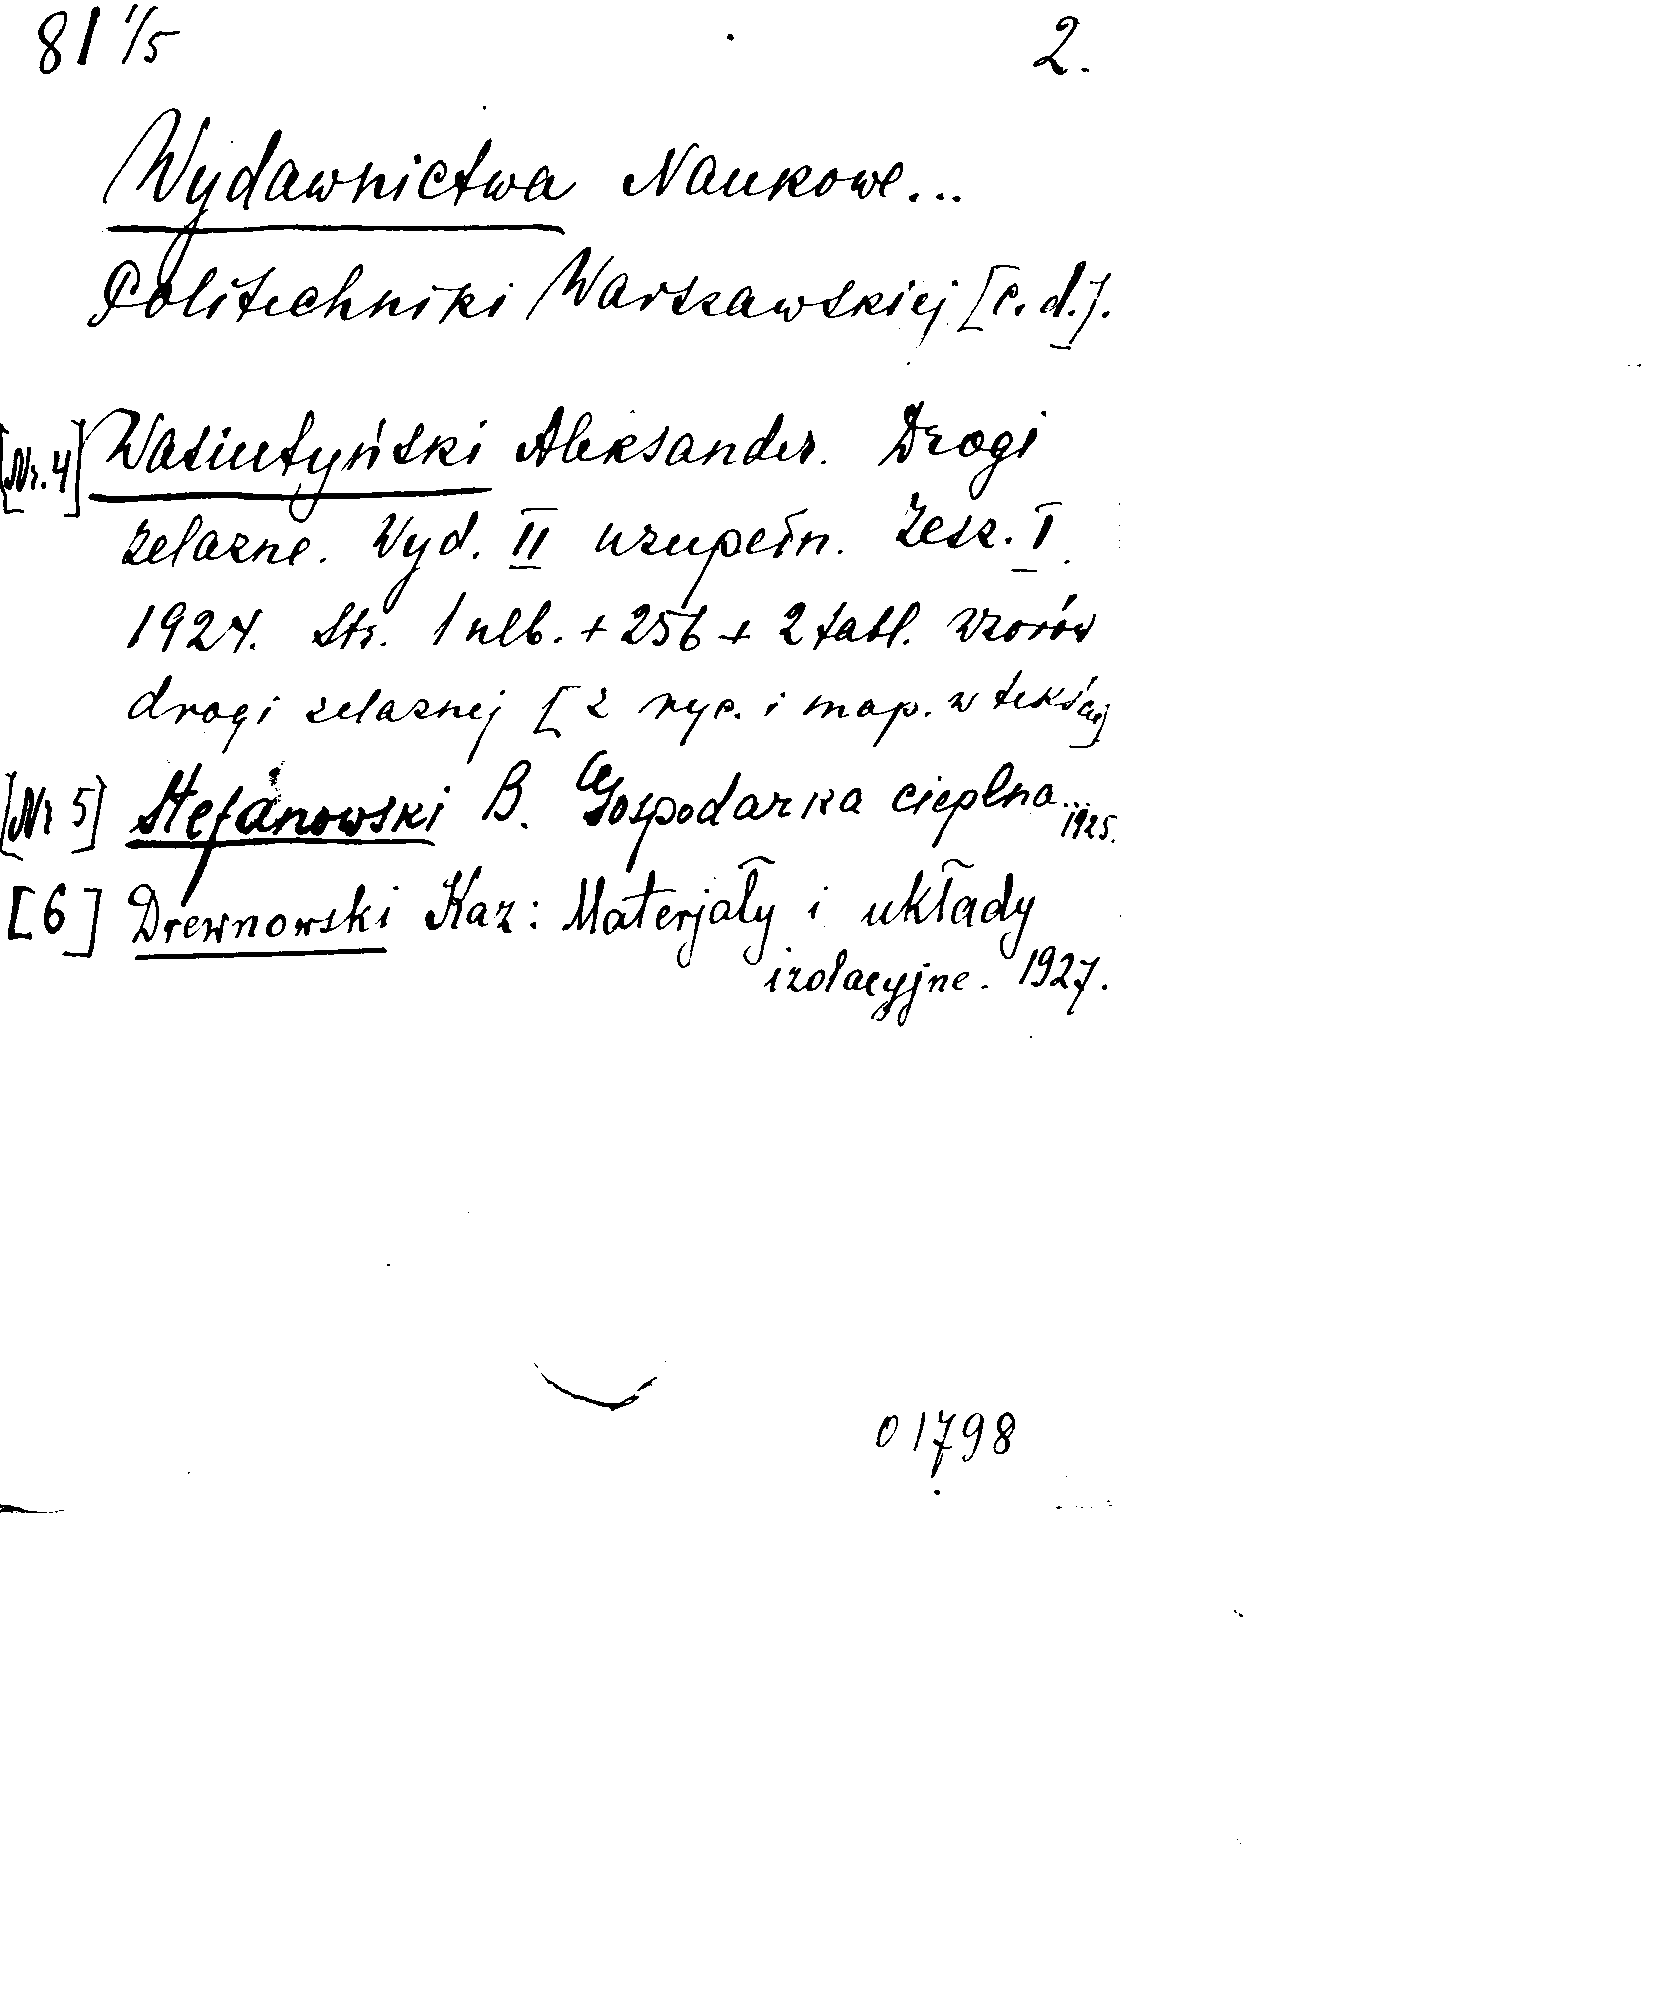 81 1/5 2.
Wydawnictwa Naukowe...
Politechniki Warszawskiej [c. d.].
[Nr. 4] Wasiutyński Aleksander. Drogi
żelazne. Wyd. II uzupełn. Zesz. I.
1924. Str. 1 nlb. + 256 + 2 tabl. wzorów
drogi żelaznej [z ryc. i map. w tekście]
[Nr 5] Stefanowski B. Gospodarka cieplna... 1925.
[6] Drewnowski Kaz: Materjały i układy
izolacyjne. 1927.
01798